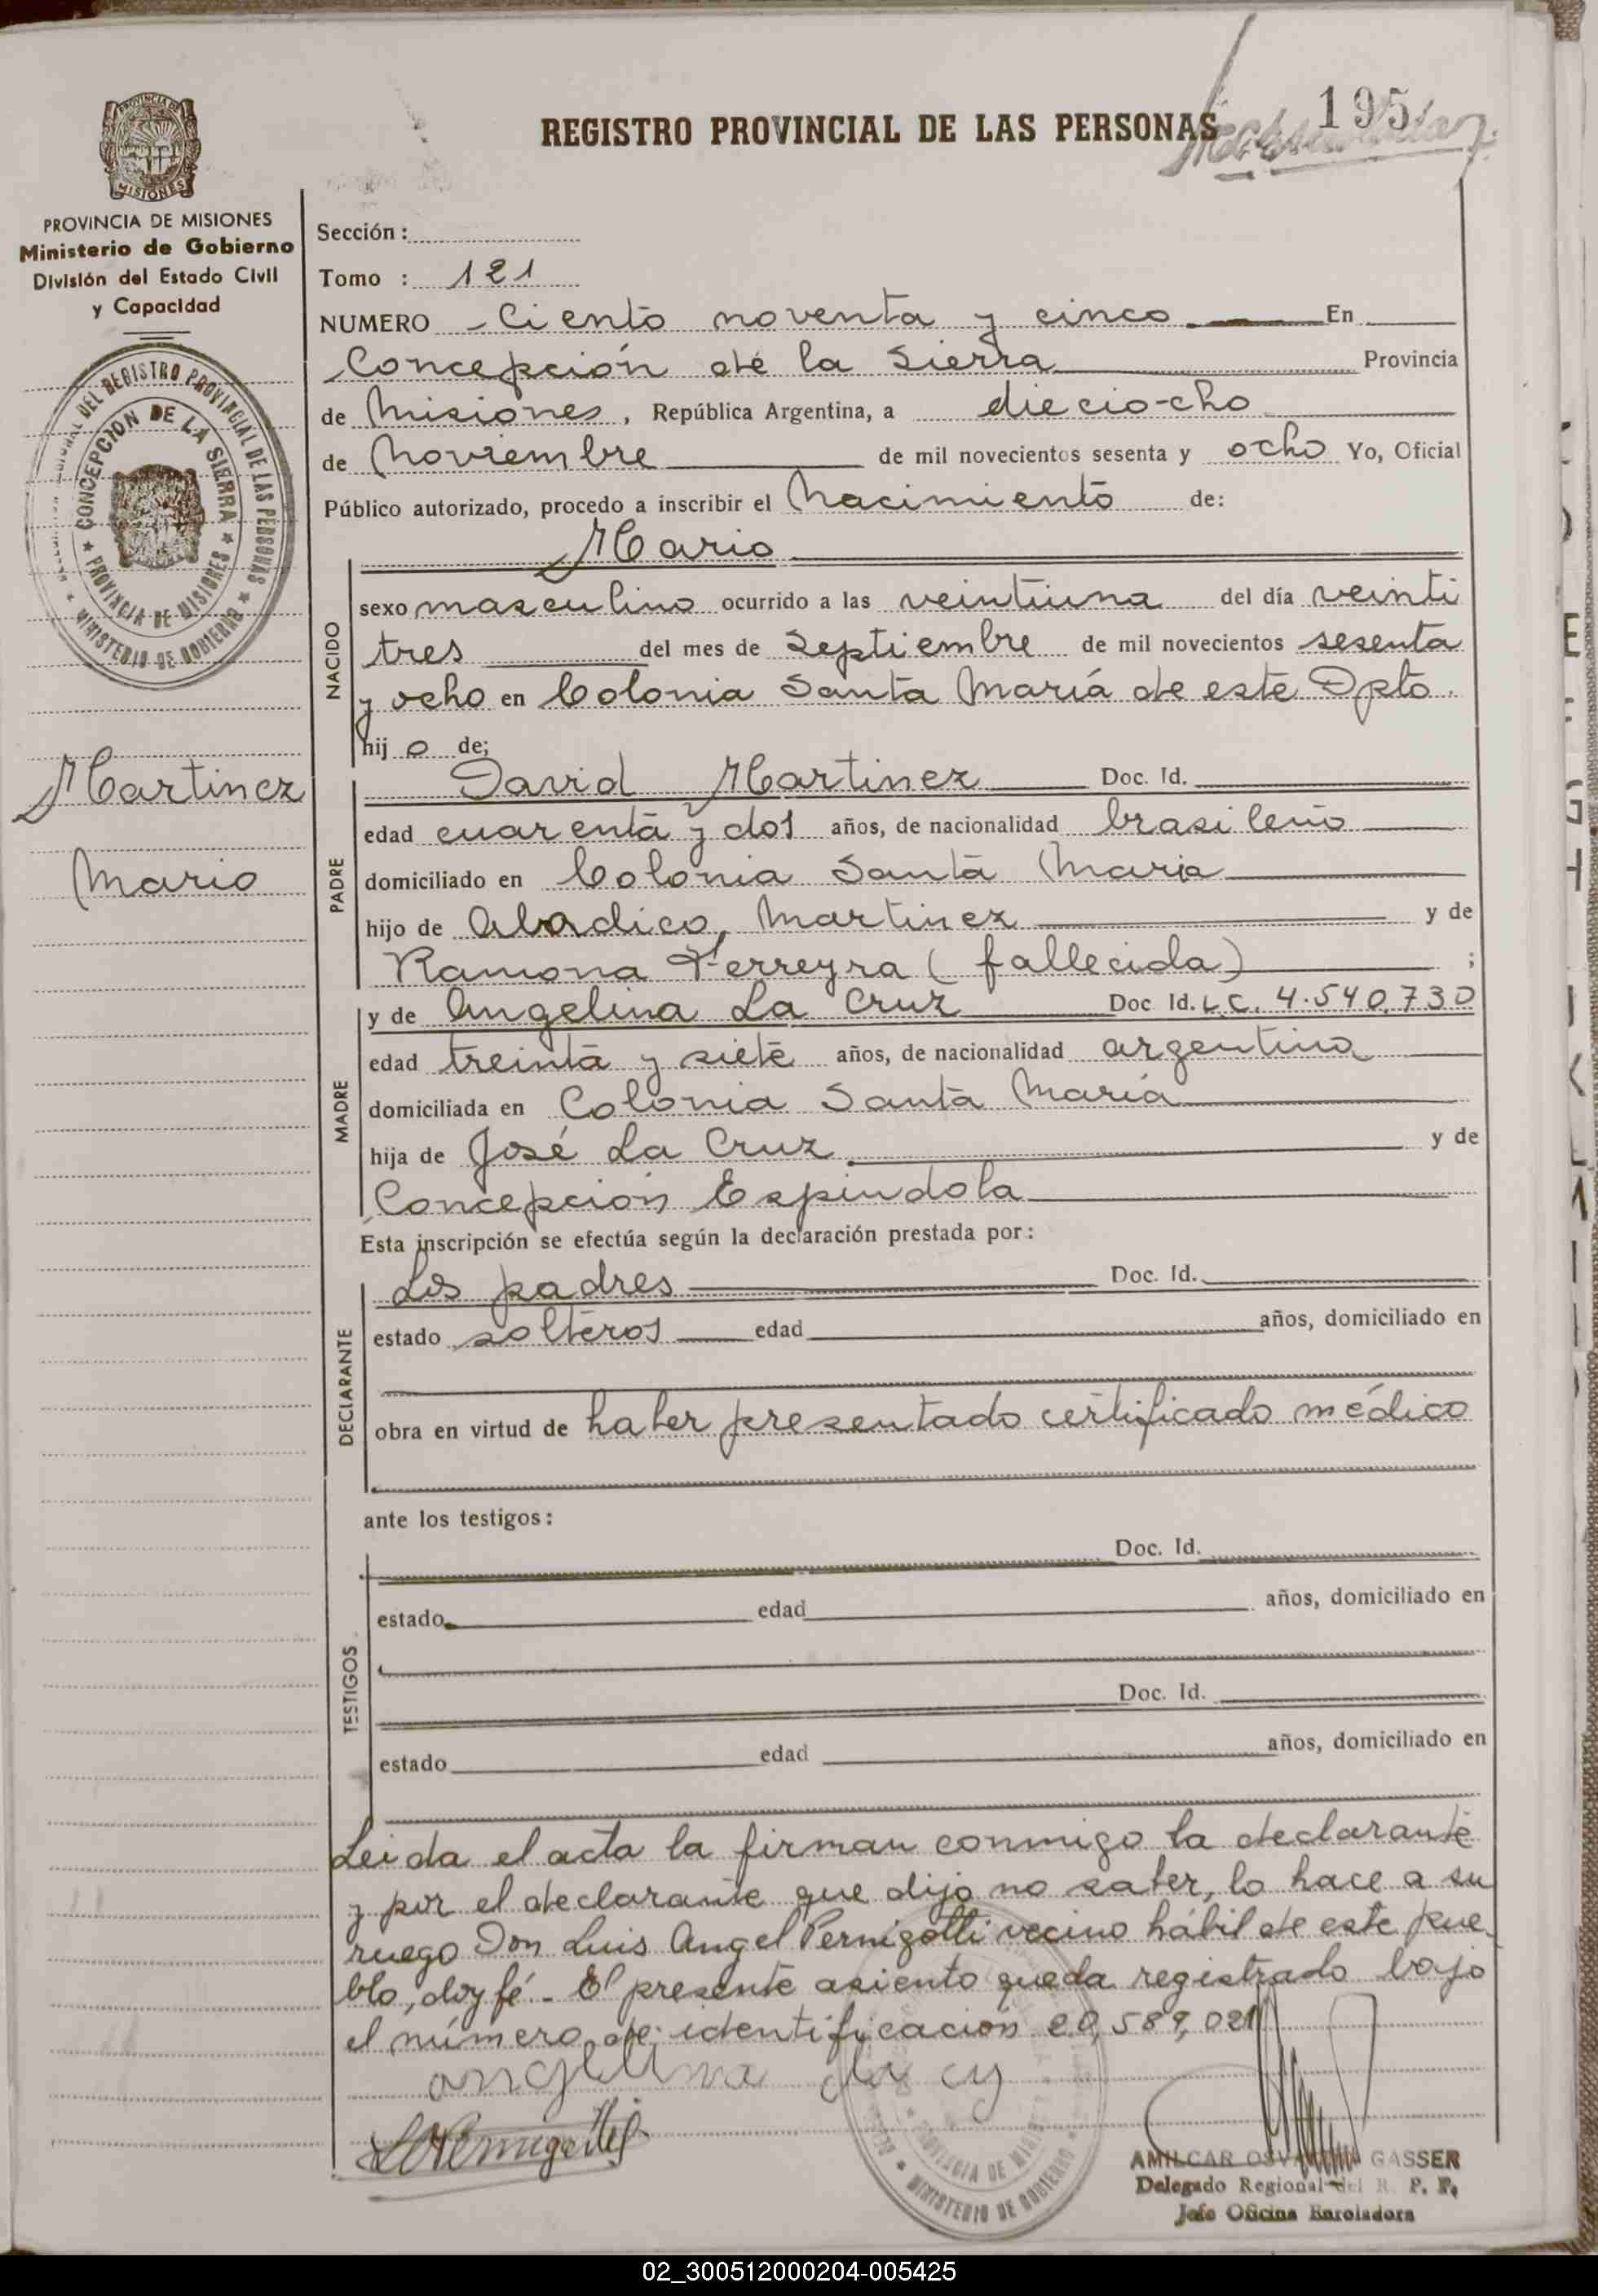 195
REGISTRO PROVINCIAL DE LAS PERSONAS
PROVINCIA DE MISIONES
Ministerio de Gobierno
División del Estado Civil
y Capacidad
REGISTRO PROVINCIAL DE LAS PERSONAS
CONCEPCION DE LA SIERRA
PROVINCIA DE MISIONES
MINISTERIO DE GOBIERNO
Martinez
Mario
Sección :
Tomo : 121
NUMERO Ciento noventa y cinco En
Concepción de la Sierra Provincia
de Misiones, República Argentina, a dieciocho
de Noviembre de mil novecientos sesenta y ocho Yo, Oficial
Público autorizado, procedo a inscribir el Nacimiento de:
Mario
NACIDO
sexo masculino ocurrido a las veintiuna del día veinti
tres del mes de Septiembre de mil novecientos sesenta
y ocho en Colonia Santa María de este Dpto.
hij o de;
PADRE
David Martinez Doc. Id.
edad cuarenta y dos años, de nacionalidad brasileño
domiciliado en Colonia Santa Maria
hijo de Martinez y de
Ramona Ferreyra (fallecida) ;
MADRE
y de Angelina La Cruz Doc Id. L.C. 4.540.730
edad treinta y siete años, de nacionalidad argentina
domiciliada en Colonia Santa María
hija de José La Cruz y de
Concepción Espindola
Esta inscripción se efectúa según la declaración prestada por:
DECLARANTE
Los padres Doc. Id.
estado solteros edad años, domiciliado en
obra en virtud de haber presentado certificado médico
ante los testigos:
TESTIGOS
Doc. Id.
estado edad años, domiciliado en
Doc. Id.
estado edad años, domiciliado en
Leida el acta la firman conmigo la declarante
y por el declarante que dijo no saber, lo hace a su
ruego Don Luis Angel Pernigotti vecino hábil de este pue
blo, doy fé. - El presente asiento queda registrado bajo
el número de identificación 20,589,021
angelina la
PROVINCIA DE MISIONES
MINISTERIO DE GOBIERNO
AMILCAR GASSER
Delegado Regional del R. P. P.
Jefe Oficina Enroladora
02_300512000204-005425